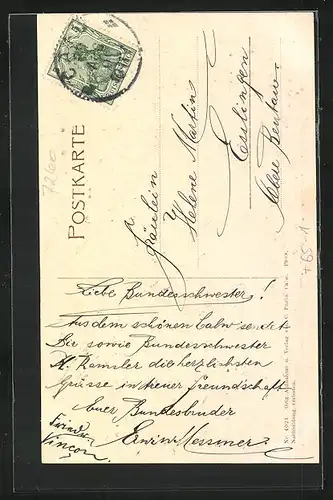 POSTKARTE
Fräulein
Helene Martin
Esslingen
7260
+65-1
Liebe Bundesschwester!
Aus dem schönen Calw sendet
Dir sowie Bundesschwester
H. Ramsler die herzlichsten
Grüsse in treuer Freundschaft
Euer Bundesbruder
Erwin Messmer